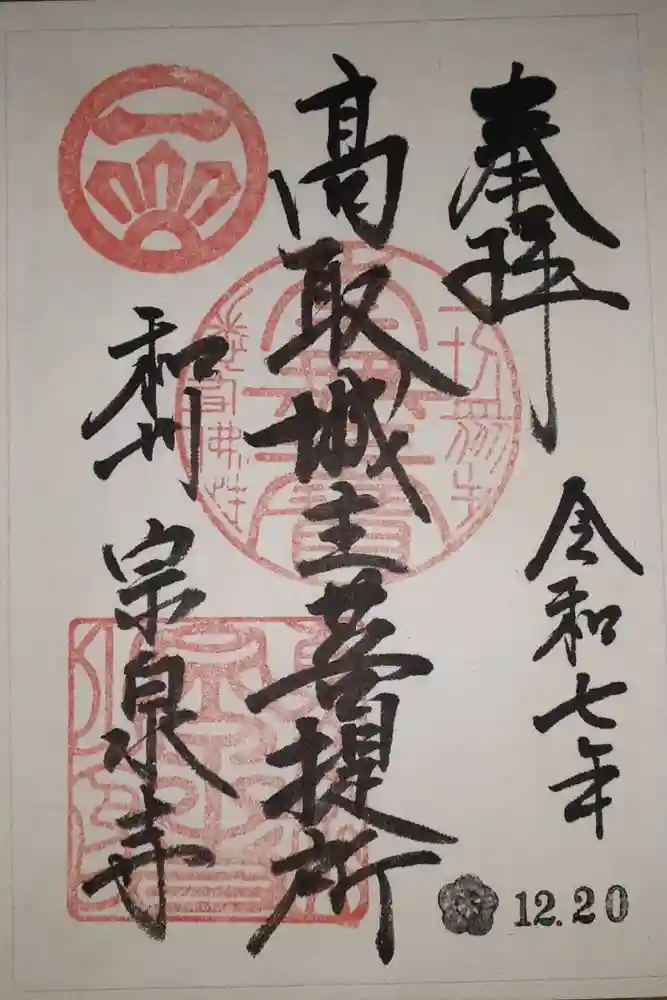 奉拝
令和七年
12.20
高取城主菩提所
和州
宗泉寺